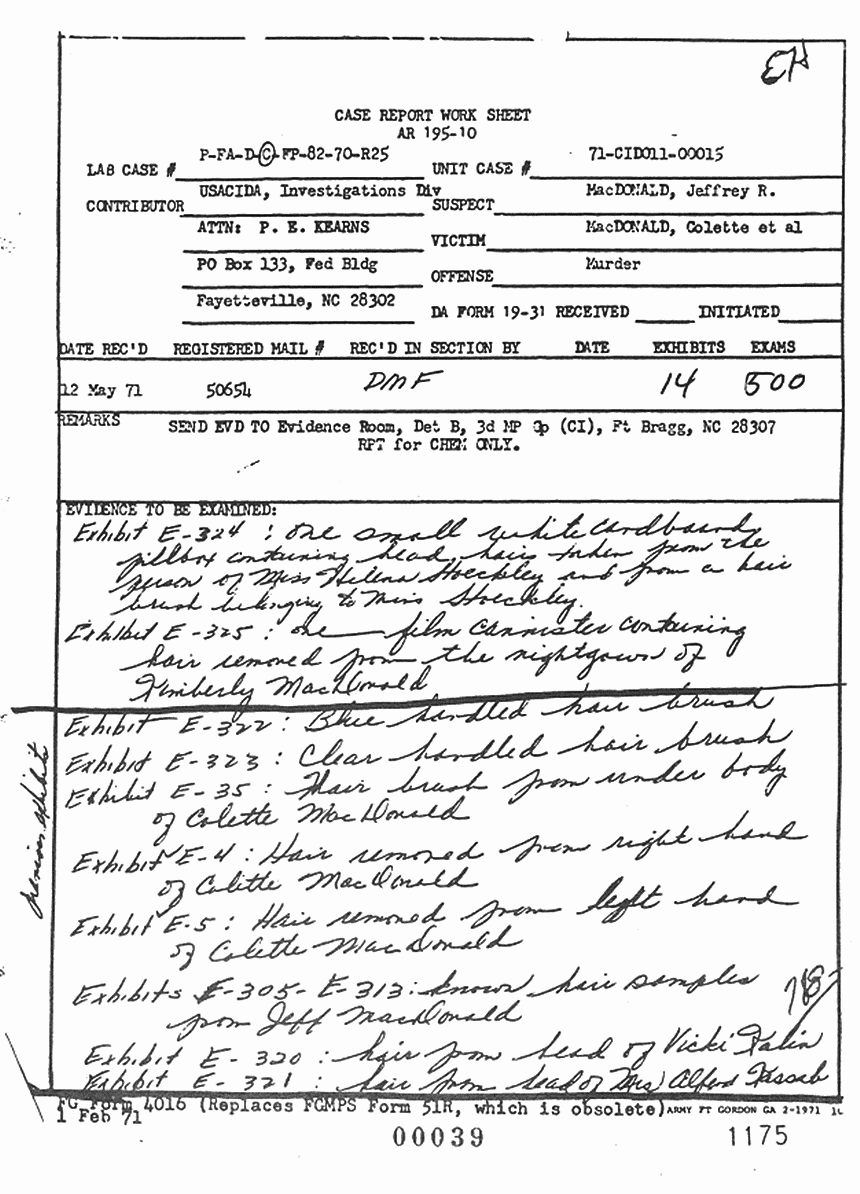 EH
CASE REPORT WORK SHEET
AR 195-10
LAB CASE # P-FA-D-C-FP-82-70-R25 UNIT CASE # 71-CID011-00015
CONTRIBUTOR USACIDA, Investigations Div SUSPECT MacDONALD, Jeffrey R.
ATTN: P. E. KEARNS VICTIM MacDONALD, Colette et al
PO Box 133, Fed Bldg OFFENSE Murder
Fayetteville, NC 28302 DA FORM 19-31 RECEIVED INITIATED
DATE REC'D REGISTERED MAIL # REC'D IN SECTION BY DATE EXHIBITS EXAMS
12 May 71 50654 DMF 14 500
REMARKS SEND EVD TO Evidence Room, Det B, 3d MP Gp (CI), Ft Bragg, NC 28307
RPT for CHEM ONLY.
EVIDENCE TO BE EXAMINED:
Exhibit E-324 : one small white cardboard
pillbox containing head hairs taken from the
person of Miss Helena Stoeckley and from a hair
brush belonging to Miss Stoeckley.
Exhibit E-325 : one film cannister containing
hair removed from the nightgown of
Kimberly MacDonald
Exhibit E-322 : Blue handled hair brush
Exhibit E-323 : Clear handled hair brush
Exhibit E-35 : Hair brush from under body
of Colette MacDonald
previous exhibits
Exhibit E-4 : Hair removed from right hand
of Colette MacDonald
Exhibit E-5 : Hair removed from left hand
of Colette MacDonald
Exhibits E-305 - E-313 : known hair samples
from Jeff MacDonald
Exhibit E-320 : hair from head of Vicki Kalin
Exhibit E-321 : hair from head of Mrs Alfred Kassab
FG Form 4016 (Replaces FGMPS Form 51R, which is obsolete) ARMY FT GORDON GA 2-1971
1 Feb 71
00039 1175